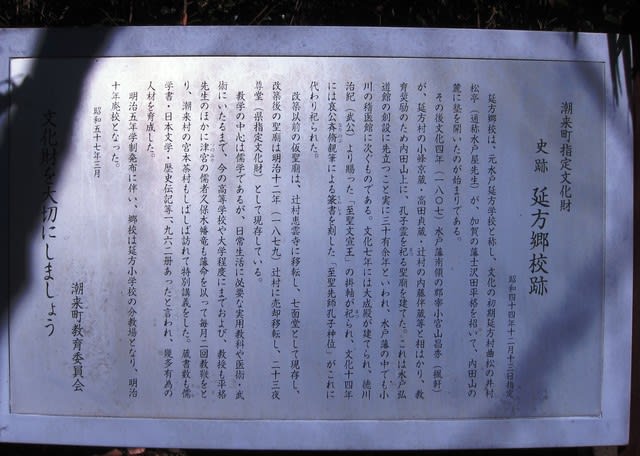 潮来町指定文化財
史跡 延方郷校跡
昭和四十四年十二月十三日指定
延方郷校は、元水戸延方学校と称し、文化の初期延方村曲松の沢村
松亭（通称水戸屋先生）が、加賀の藩士沢田平格を招いて、内田山の
麓に塾を開いたのが始まりである。
その後文化四年（一八〇七）水戸藩南領の郡宰小宮山昌秀（楓軒）
が、延方村の小峰京蔵・高田貞蔵・辻村の内藤伴蔵等と相はかり、教
育奨励のため内田山上に、孔子霊を祀る聖廟を建てた。これは水戸弘
道館の創設に先立つこと実に三十有余年といわれ、水戸藩の中でも小
川の稽医館に次ぐものである。文化七年には大成殿が建てられ、徳川
治紀（武公）より賜った「至聖文宣王」の掛軸が祀られ、文化十四年
には哀公斉脩親筆による篆書を刻した「至聖先師孔子神位」がこれに
代わり祀られた。
改築以前の仮聖廟は、辻村恵雲寺に移転し、七面堂として現存し、
改築後の聖廟は明治十二年（一八七九）辻村に売却移転し、二十三夜
尊堂（県指定文化財）として現存している。
教学の中心は儒学であるが、日常生活に必要な実用教科や医術・武
術にいたるまで、今の高等学校や大学程度にまでおよび、教授も平格
先生のほかに津宮の儒者久保木幡竜も藩命を以って毎月二回教鞭をと
り、潮来村の宮本茶村もしばしば訪れて特別講義をした。蔵書数も儒
学書・日本文学・歴史伝記等一、九六二冊あったと言われ、幾多有為の
人材を育成した。
明治五年学制発布に伴い、郷校は延方小学校の分教場となり、明治
十年廃校となった。
昭和五十七年三月
潮来町教育委員会
文化財を大切にしましょう